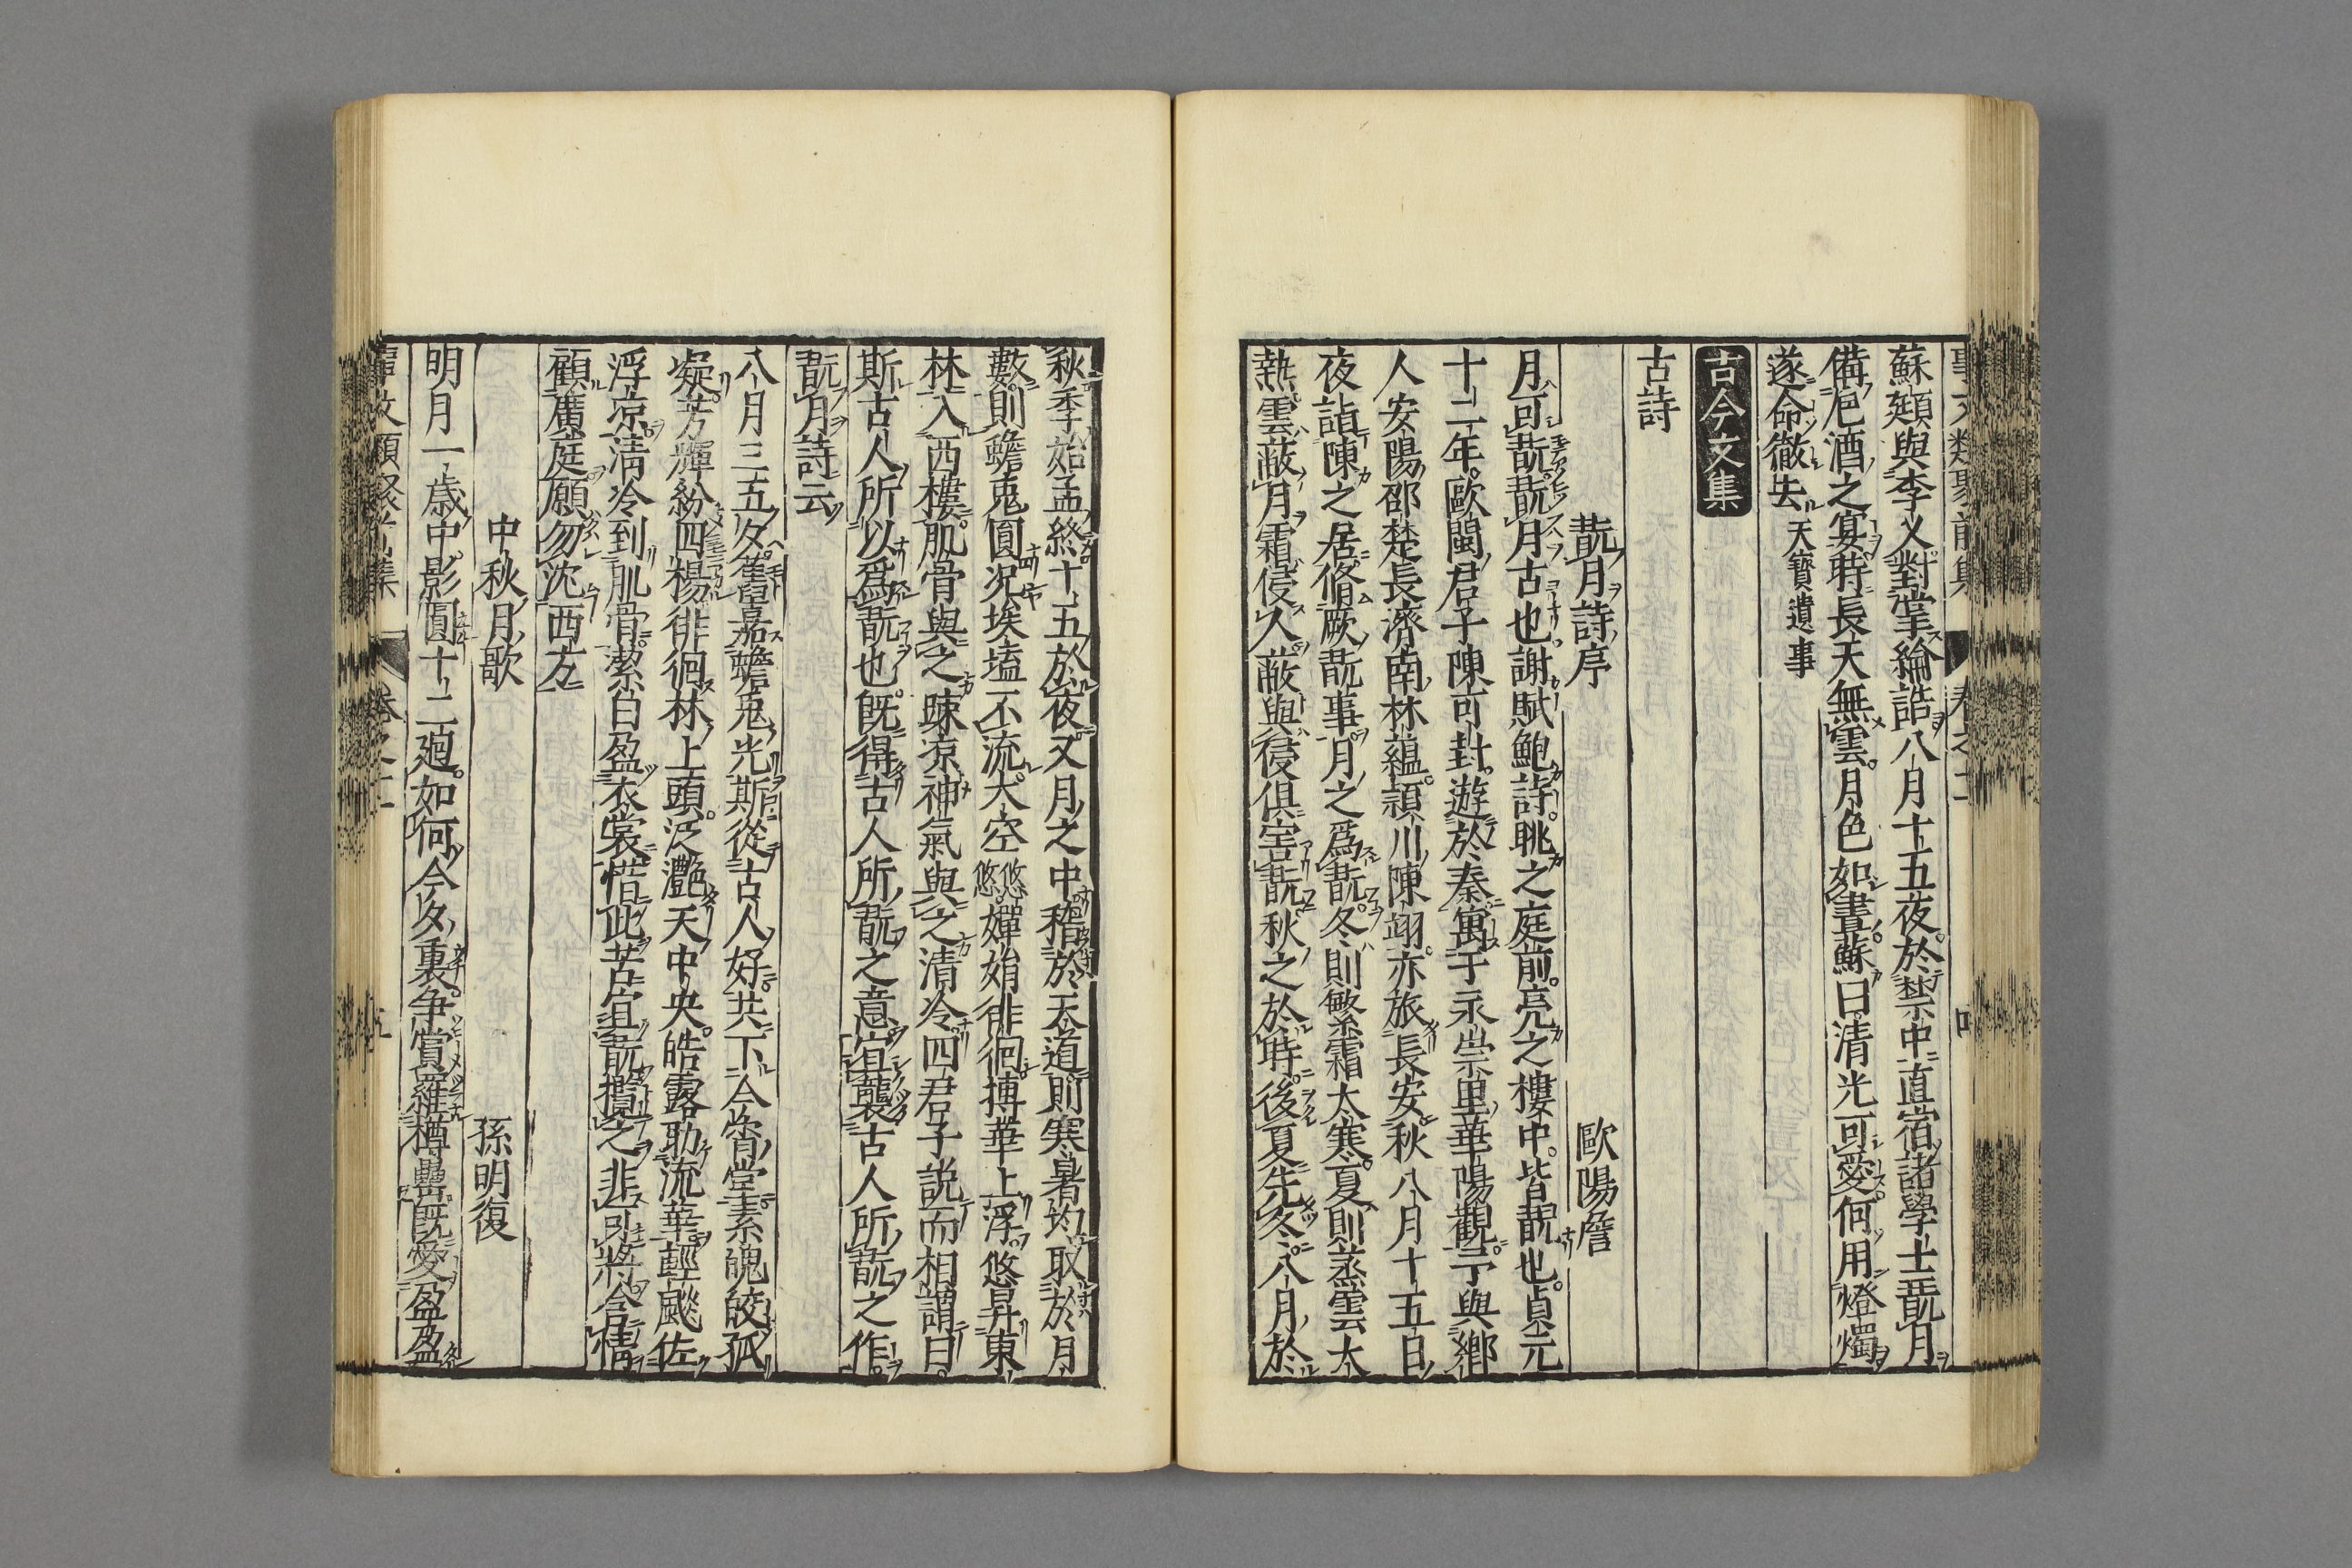 事文類聚前集 卷之十一
蘇頲與李乂對掌綸誥八月十五夜於禁中直宿諸學士翫月
備巵酒之宴時長天無雲月色如晝蘇曰清光可愛何用燈燭
遂命徹去 天寶遺事
古今文集
古詩
翫月詩序 歐陽詹
月可翫翫月古也謝賦鮑詩眺之庭前亮之樓中皆翫也貞元
十二年歐閩君子陳可封遊於秦寓于永崇里華陽觀予與鄉
人安陽邵楚長濟南林蘊潁川陳詡亦旅長安秋八月十五日
夜詣陳之居脩厥翫事月之爲翫冬則繁霜太寒夏則蒸雲太
熱雲蔽月霜侵人蔽與侵俱害翫秋之於時後夏先冬八月於
秋季始孟終十五於夜又月之中稽於天道則寒暑均取於月
數則蟾兎圓況埃壒不流大空悠悠嬋娟徘徊摶華上浮悠昇東
林入西樓肌骨與之踈凉神氣與之清冷四君子説而相謂曰
斯古人所以爲翫也既得古人所翫之意宜襲古人所翫之作
翫月詩云
八月三五夕舊嘉蟾兎光斯從古人好共下今宵堂素魄皎孤
凝芳輝紛四楊徘徊林上頭泛灔天中央皓露助流華輕飈佐
浮凉清冷到肌骨潔白盈衣裳惜此苦宜翫攬之非可將含情
顧廣庭願勿沈西方
中秋月歌 孫明復
明月一歳中影圓十二廻如何今夕裏争賞羅樽罍既愛盈盈
事文類聚前集 卷之十一 五